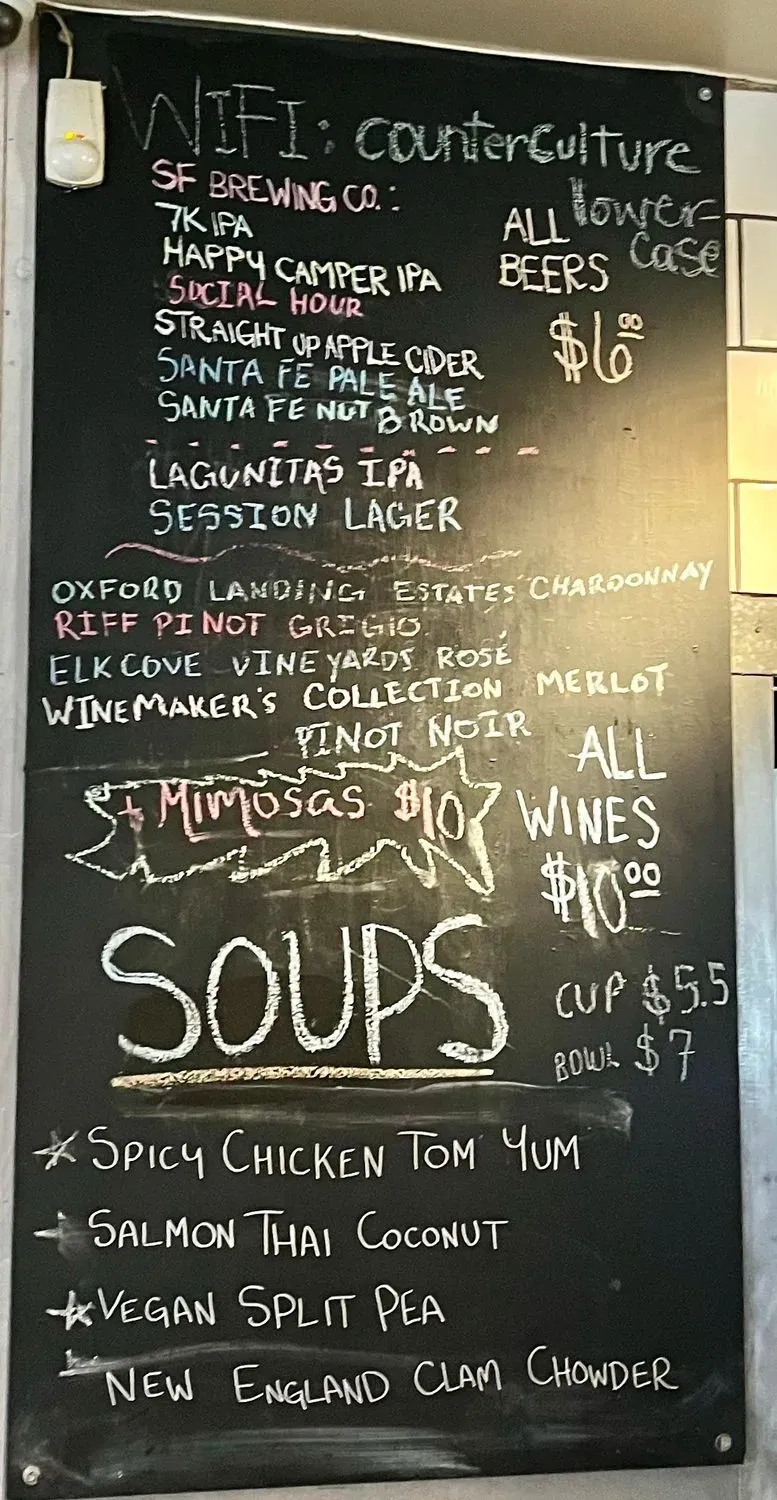 WIFI: counterculture
lower-
case
SF BREWING CO.:
7K IPA
HAPPY CAMPER IPA
SOCIAL HOUR
STRAIGHT UP APPLE CIDER
SANTA FE PALE ALE
SANTA FE NUT BROWN
ALL
BEERS
$6.00
LAGUNITAS IPA
SESSION LAGER
OXFORD LANDING ESTATES CHARDONNAY
RIFF PINOT GRIGIO
ELK COVE VINEYARDS ROSÉ
WINEMAKER'S COLLECTION MERLOT
PINOT NOIR
ALL
WINES
$10.00
+ MIMOSAS $10
SOUPS
CUP $5.5
BOWL $7
SPICY CHICKEN TOM YUM
SALMON THAI COCONUT
VEGAN SPLIT PEA
NEW ENGLAND CLAM CHOWDER